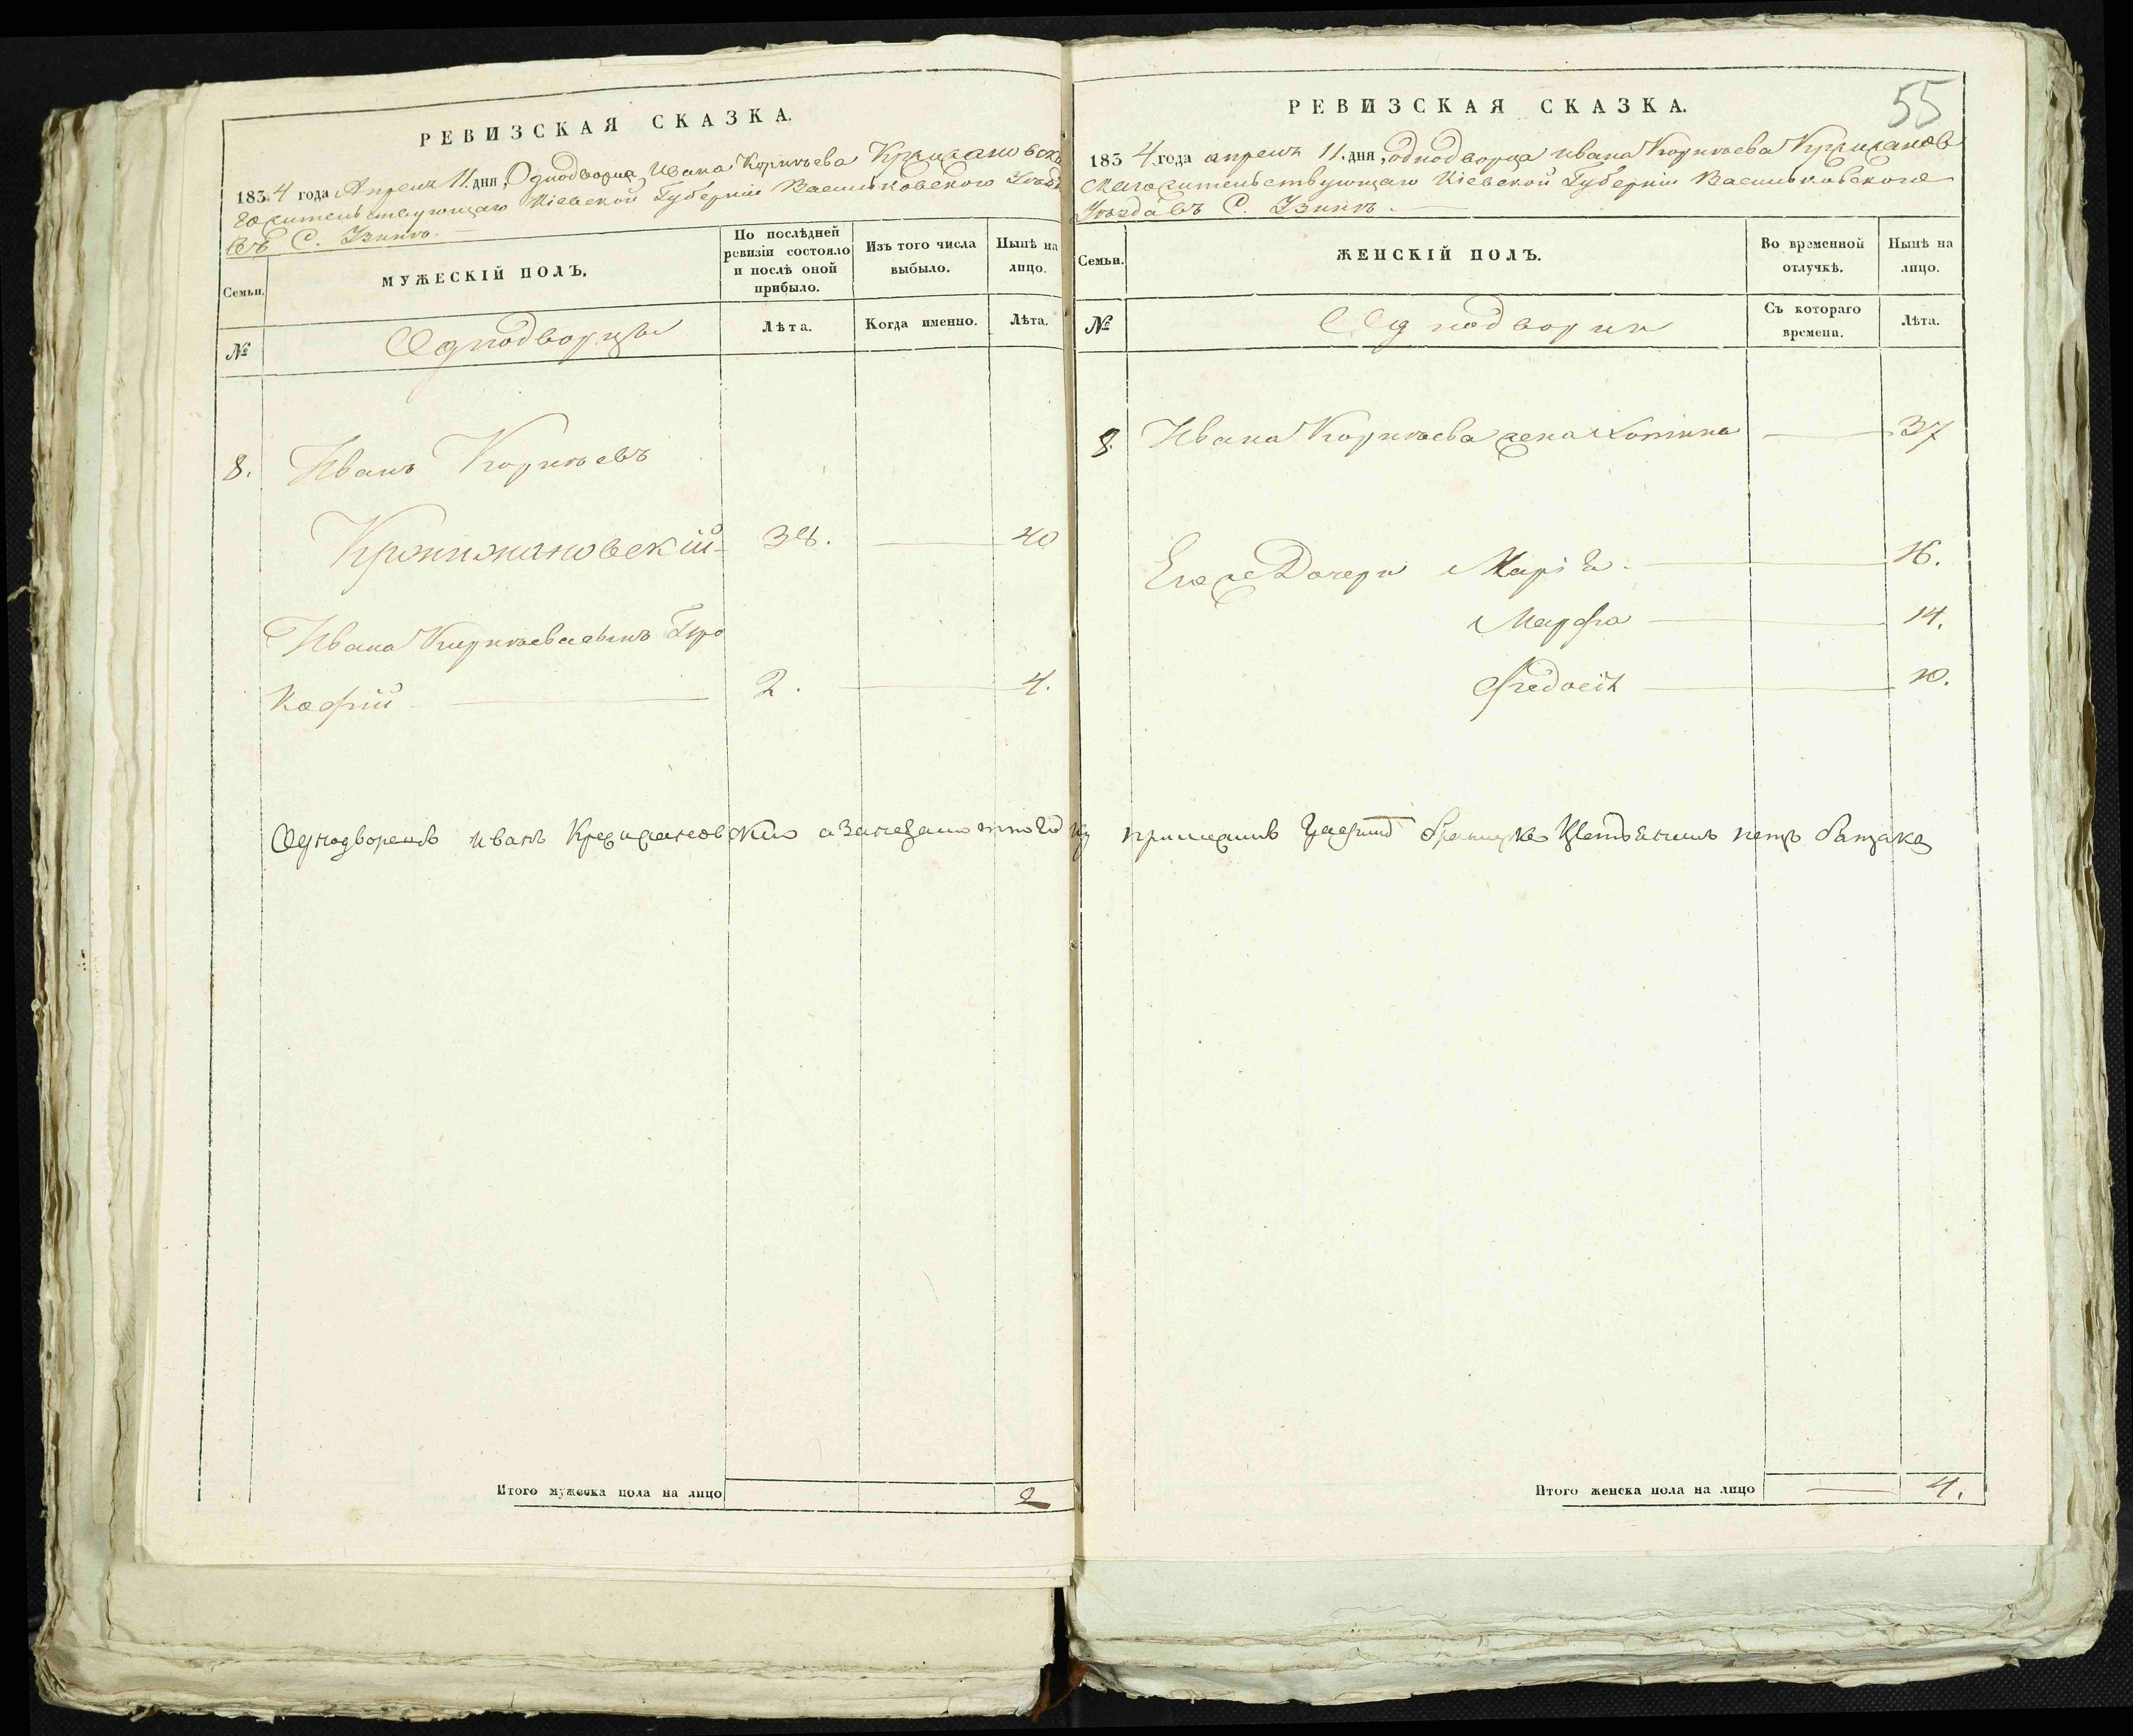 РЕВИЗСКАЯ СКАЗКА.
183.4 года Апреля 11. дня, Однодворца Ивана Корнѣева Кржижановска
го жительствующаго Кіевской Губерніи Васильковскаго Уѣзда
въ С. Узинѣ.
Семьи.
МУЖЕСКІЙ ПОЛЪ.
По послѣдней
ревизіи состояло
и послѣ оной
прибыло.
Изъ того числа
выбыло.
Нынѣ на
лицо.
№
Однодворцы
Лѣта.
Когда именно.
Лѣта.
8. Иванъ Корнѣевъ
38. 40
Ивана Корнѣева сынъ Про
кофій 2. 4.
Однодворецъ иванъ
Итого мужеска пола на лицо 2
55
РЕВИЗСКАЯ СКАЗКА.
183 4. года апреля 11. дня, однодворца ивана Корнѣева Кржижанов
скаго жительствующаго Кіевской Губерніи Васильковскаго
Уѣзда въ С. Узинѣ.
Семьи.
ЖЕНСКІЙ ПОЛЪ.
Во временной
отлучкѣ.
Нынѣ на
лицо.
№
Однодворки
Съ котораго
времени.
Лѣта.
8. Ивана Корнѣева жена 37
Его же Дочери Марія 16.
Марфа 14.
Федосія 10.
Итого женска пола на лицо 4.